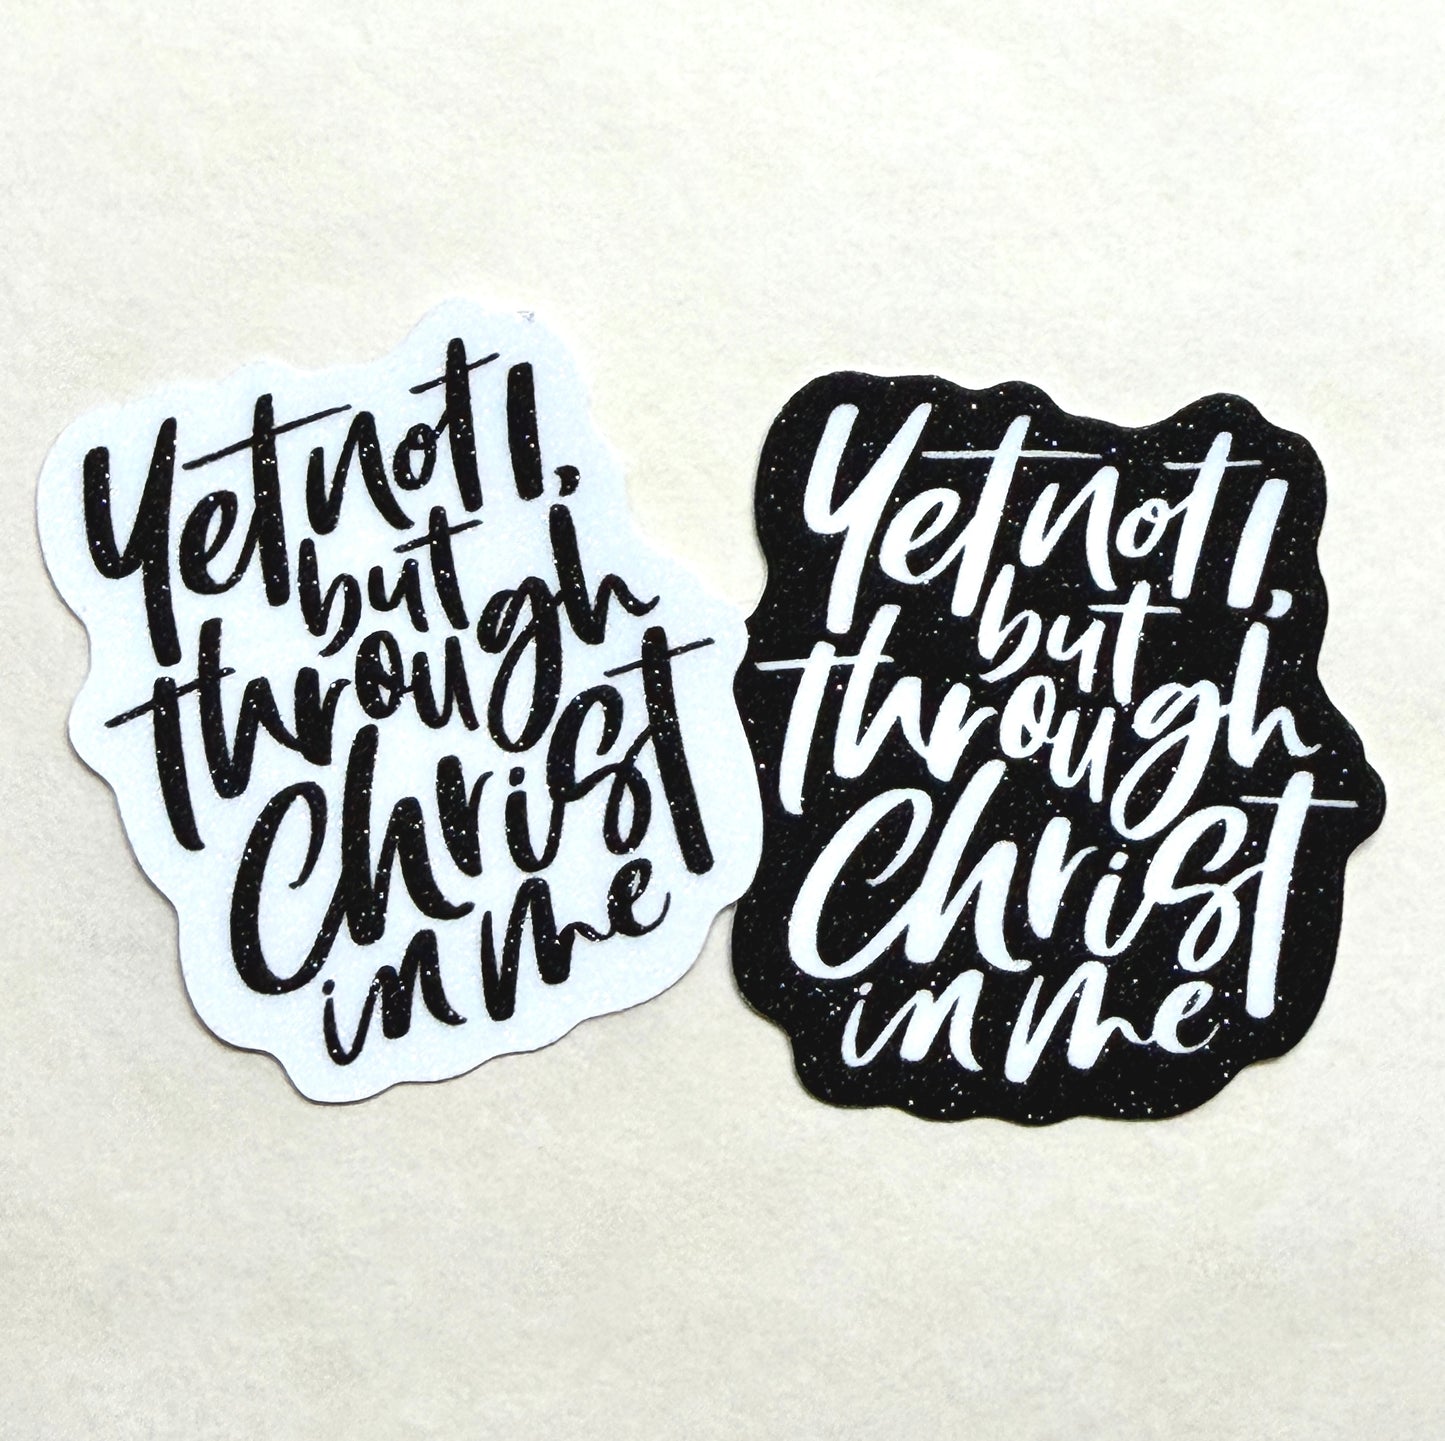 Yet not I,
but
through
Christ
in me
Yet not I,
but
through
Christ
in me